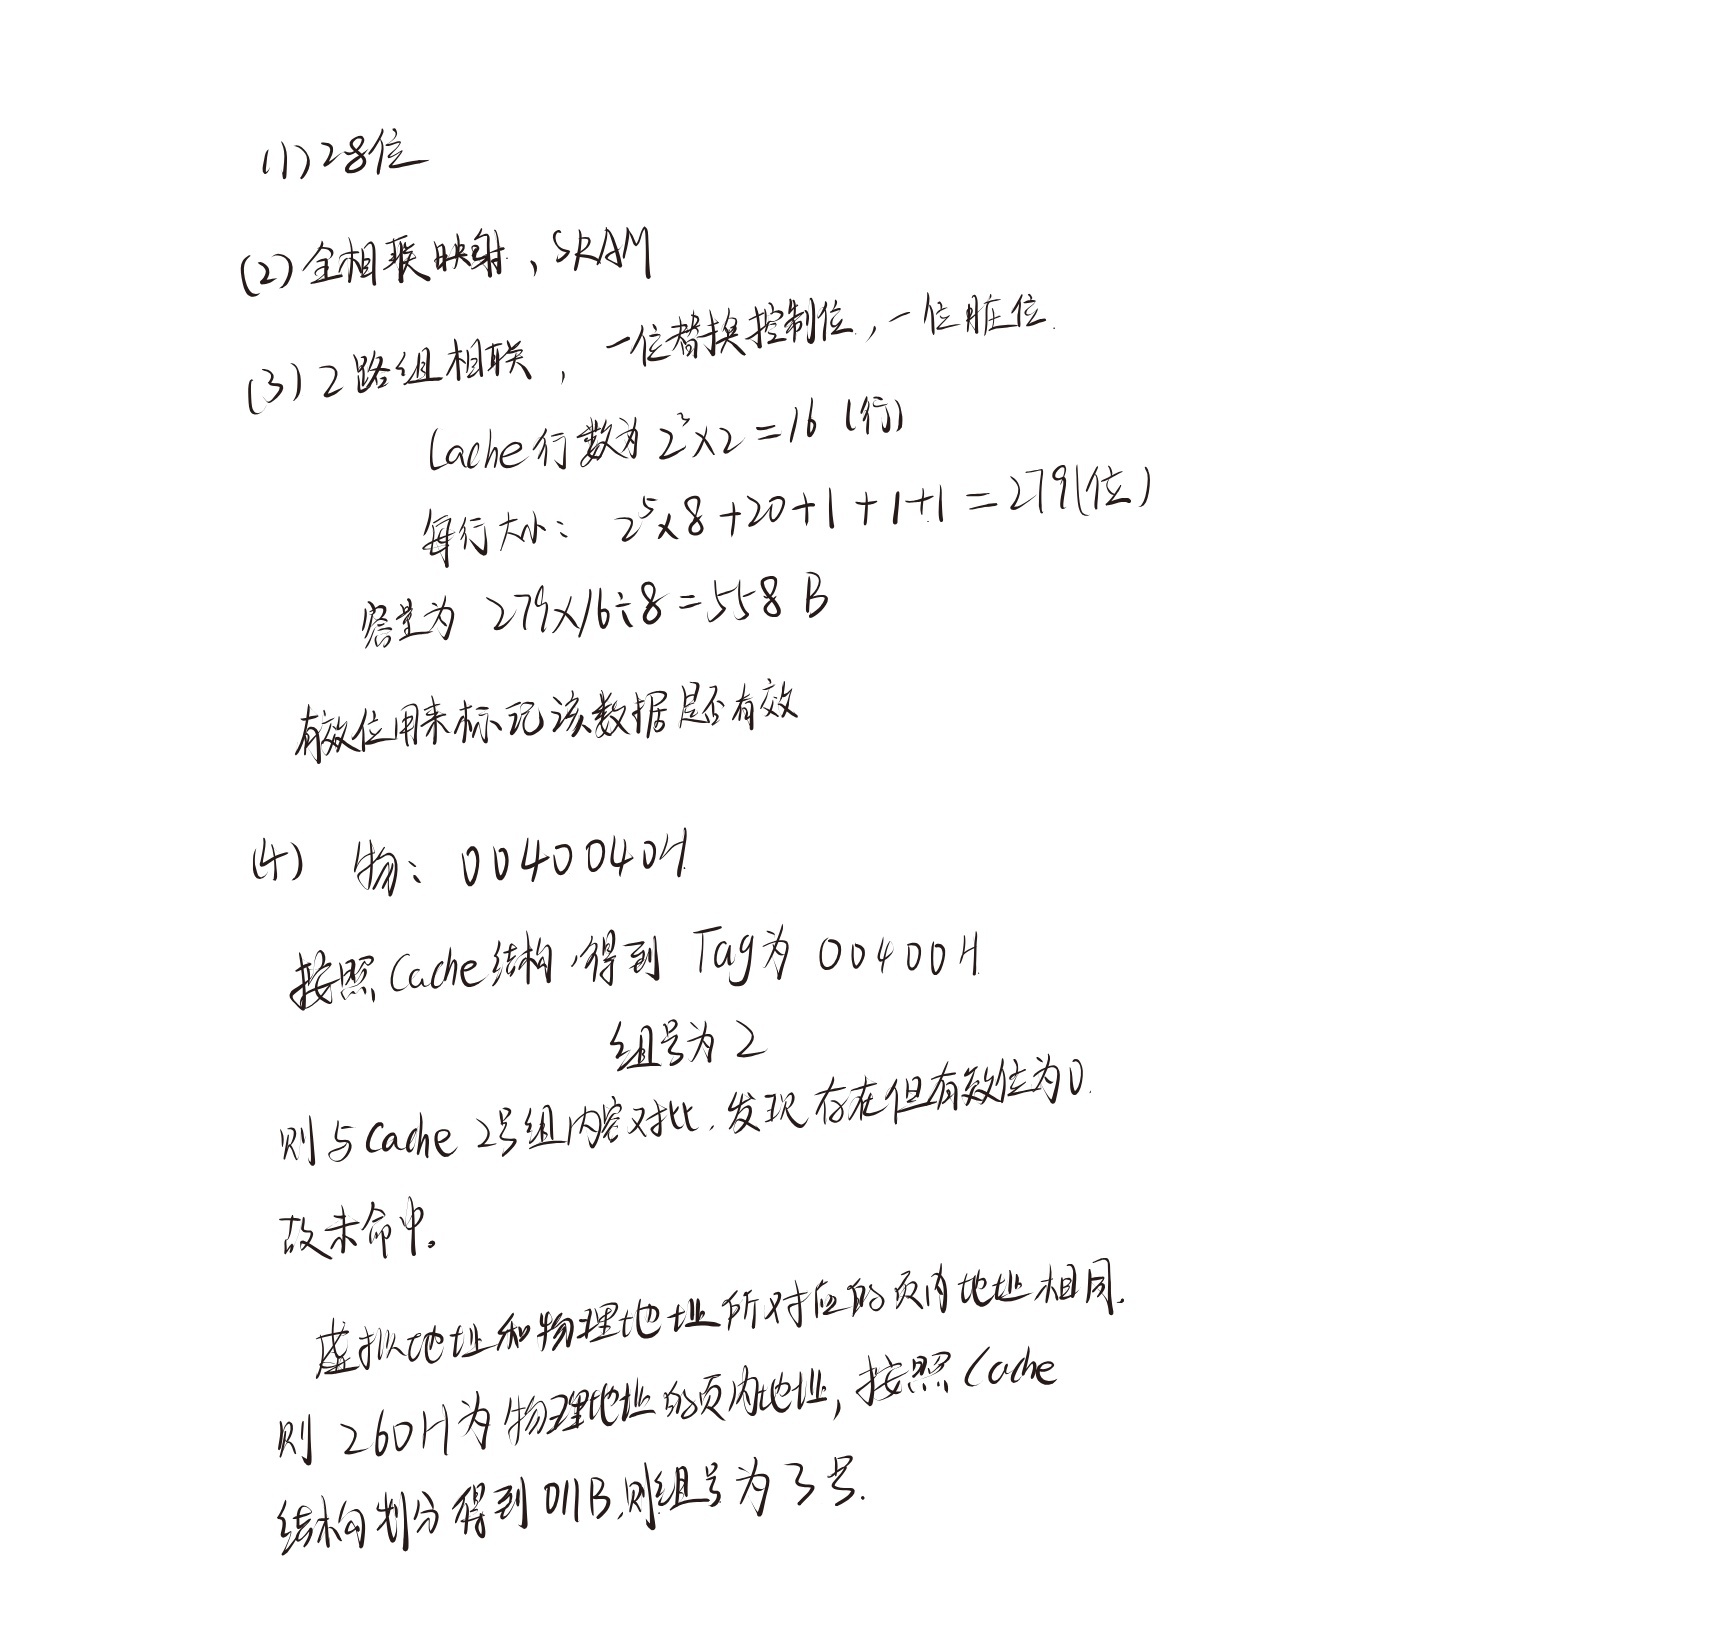 (1) 28位
(2) 全相联映射, SRAM
(3) 2路组相联, 一位替换控制位, 一位脏位.
Cache行数为 2³×2=16 (行)
每行大小: 2⁵×8+20+1+1+1=279(位)
容量为 279×16÷8=558 B
有效位用来标记该数据是否有效
(4) 物: 0040040H
按照Cache结构,得到 Tag为 00400H
组号为 2
则与Cache 2号组内容对比, 发现存在但有效位为0.
故未命中。
虚拟地址和物理地址所对应的页内地址相同.
则 260H为物理地址的页内地址, 按照Cache
结构划分得到011B,则组号为3号.